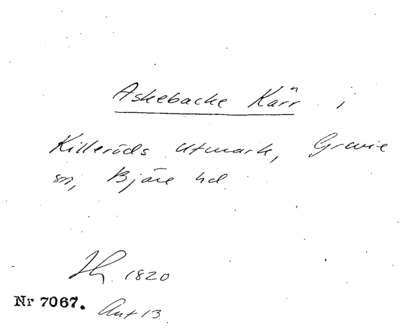 Askebacke Kärr i
Killeröds Utmark, Grevie
sn, Bjäre hd.
1820
Nr 7067. Akt 13.